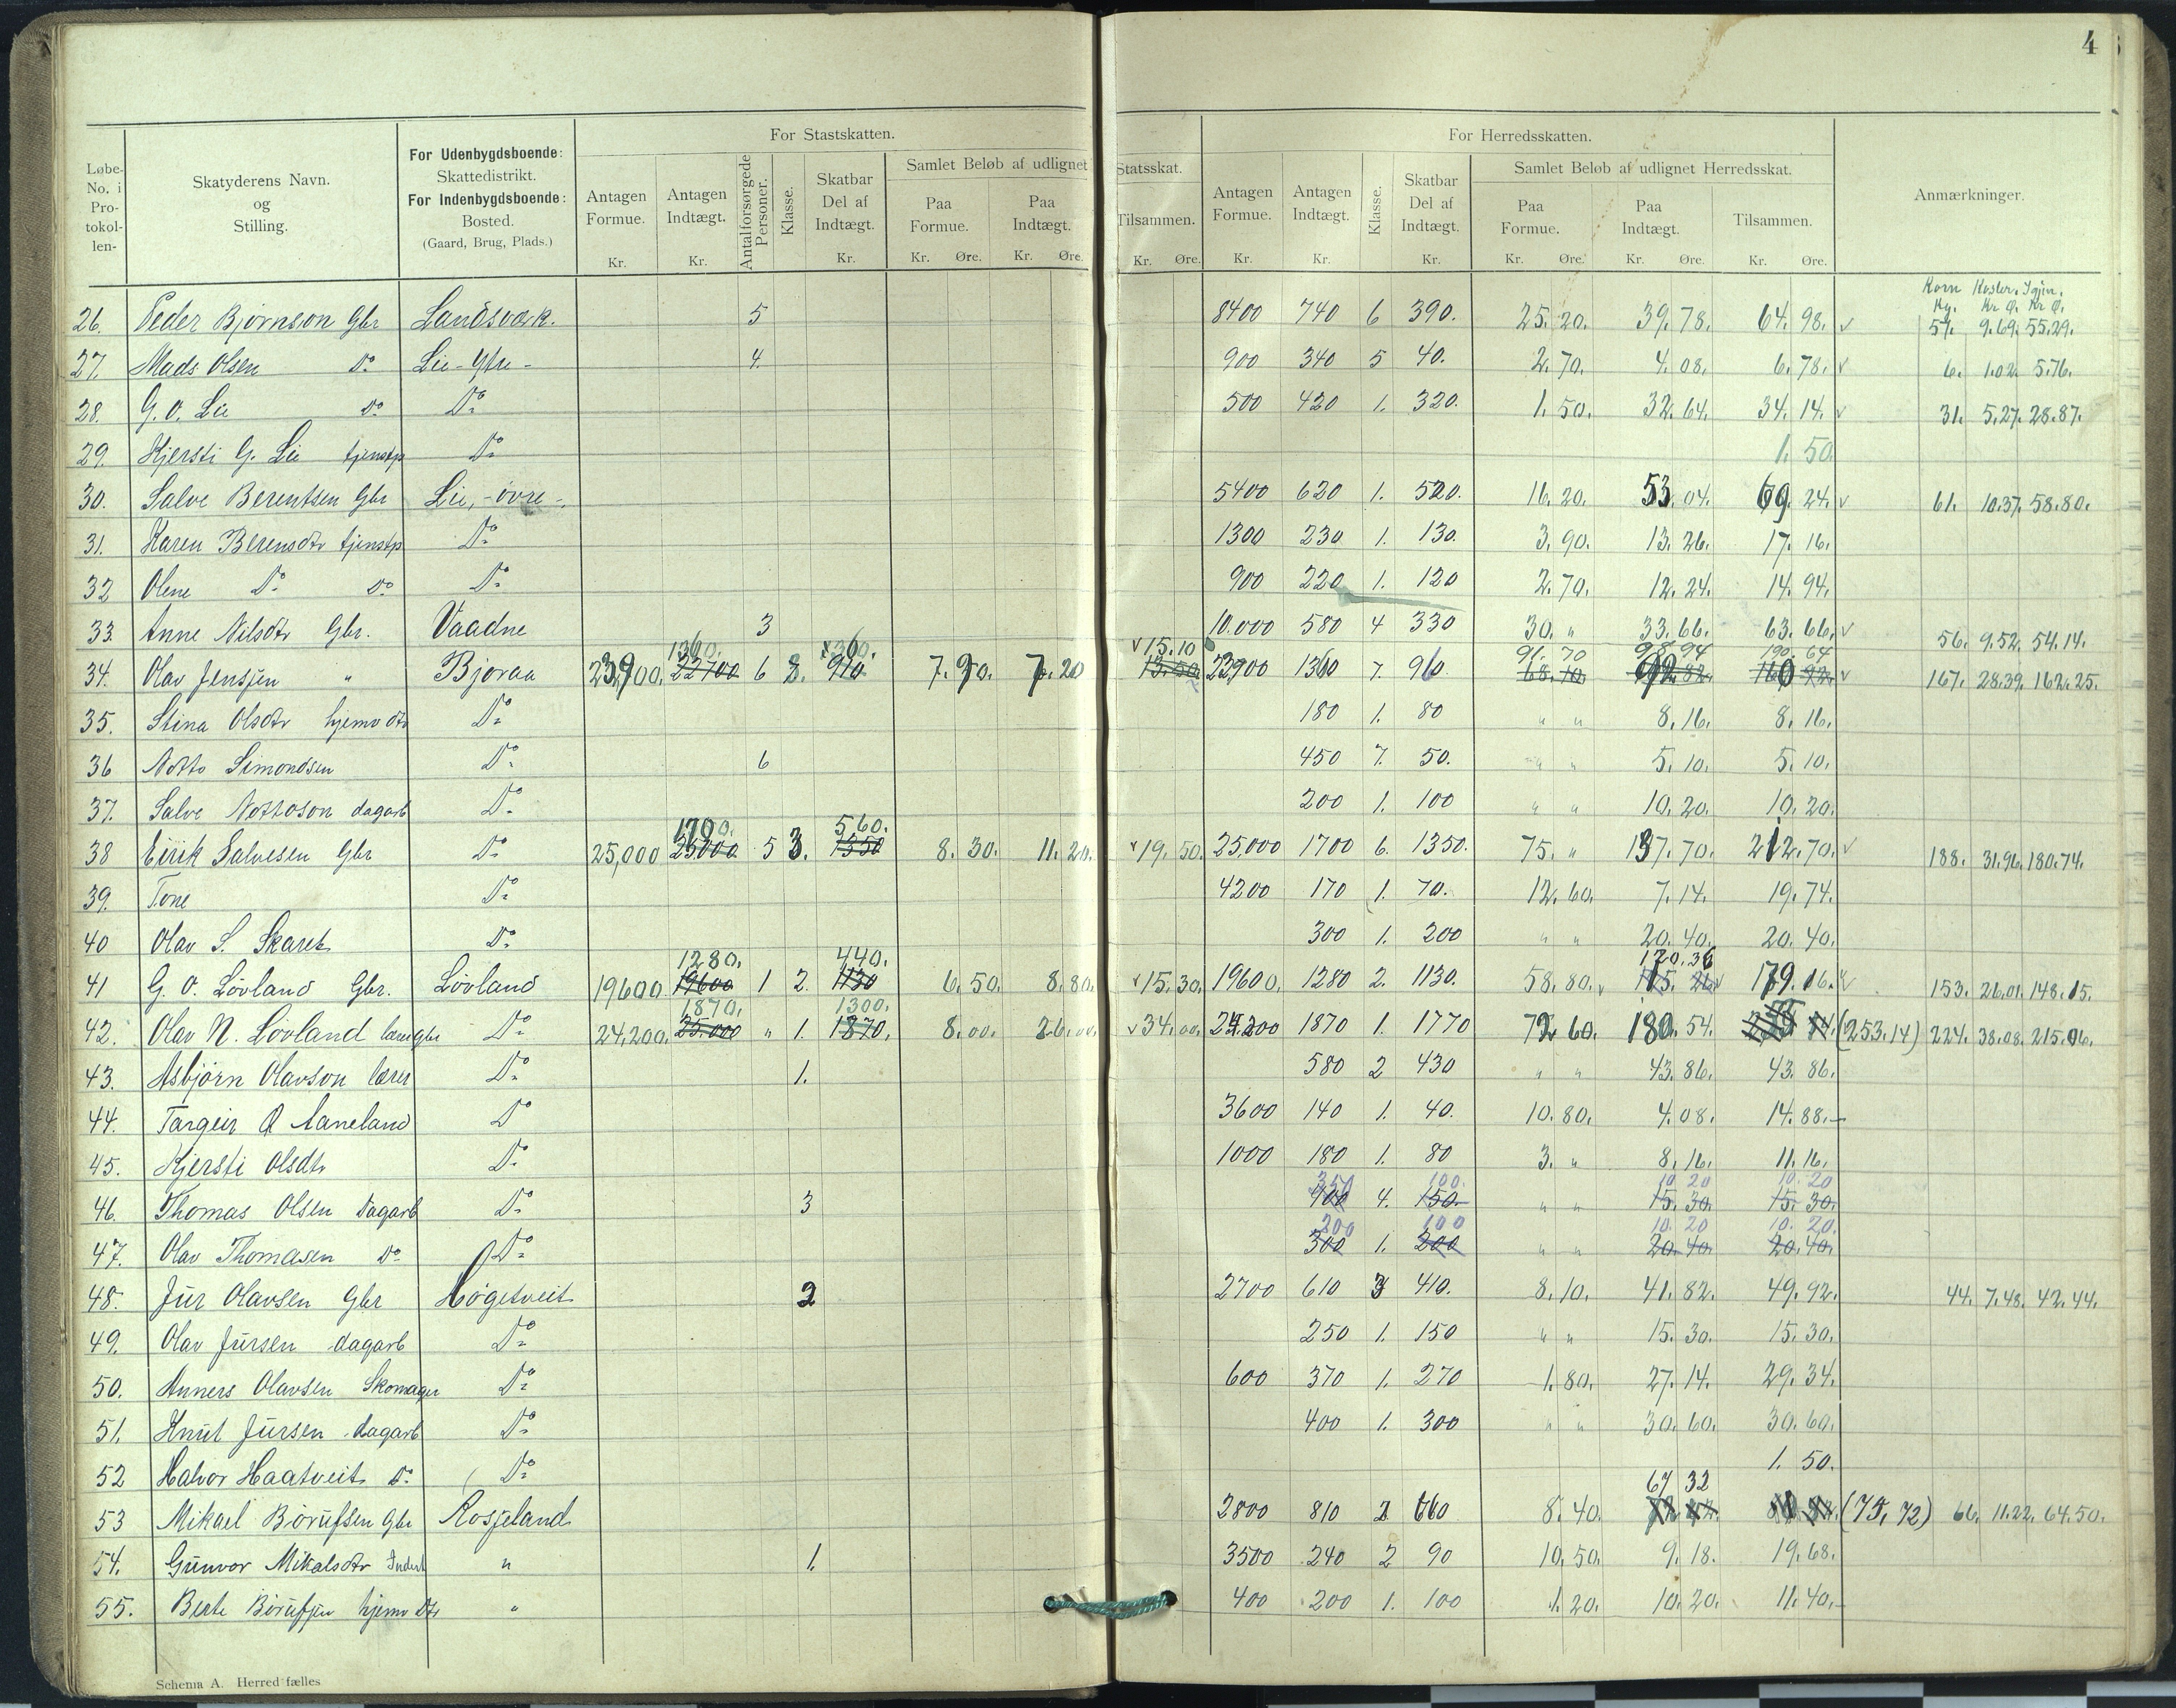 4
Løbe-No. i Pro-tokol-len-
Skatyderens Navn. og Stilling.
For Udenbygdsboende: Skattedistrikt. For Indenbygdsboende: Bosted. (Gaard, Brug, Plads.)
For Stastskatten.
Antagen Formue. Kr.
Antagen Indtægt. Kr.
Antalforsørgede Personer.
Klasse.
Skatbar Del af Indtægt. Kr.
Samlet Beløb af udlignet Statsskat.
Paa Formue. Kr. Øre.
Paa Indtægt. Kr. Øre.
Tilsammen. Kr. Øre.
For Herredsskatten.
Antagen Formue. Kr.
Antagen Indtægt. Kr.
Klasse.
Skatbar Del af Indtægt. Kr.
Samlet Beløb af udlignet Herredsskat.
Paa Formue. Kr. Øre.
Paa Indtægt. Kr. Øre.
Tilsammen. Kr. Øre.
Anmærkninger.
Korn Koster. Igjen.
Kg. Kr Ø. Kr Ø.
26. Peder Bjørnson Gbr Landsværk. 5 8400 740 6 390. 25. 20. 39. 78. 64. 98. 57. 9.69. 55.29.
27. Mads Olsen Do Lie-Ytre- 4. 900 340 5 40. 2. 70. 4. 08. 6. 78. 6. 1.02. 5.76.
28. G. O. Lie Do Do 500 420 1. 320. 1. 50. 32. 64. 34. 14. 31. 5.27. 28.87.
29. Kjersti G. Lie tjenstp Do 1. 50.
30. Salve Berentsen Gbr Lie,-övre-. 5400 620 1. 520. 16. 20. 53. 04. 69. 24. 61. 10.37. 58.80.
31. Karen Berensdtr tjenstp Do 1300 230 1. 130. 3. 90. 13. 26. 17. 16.
32 Olene Do Do Do 900 220 1. 120 2. 70. 12. 24. 14. 94.
33. Anne Nilsdtr Gbr. Vaadne 3 10.000 580 4 330 30. " 33. 66. 63. 66. 56. 9.52. 54.14.
1360. 360. 15.10 91. 70 98. 94 190. 64
34. Olav Jensjen " Bjoraa 23,900. 22700 6 8. 910. 7. 90. 7. 20 13.50 23,900 1360 7. 960. 68. 10. 92. 82. 160 92. 167. 28.39. 162.25.
35. Stina Olsdtr hjemv dtr Do 180 1. 80 " " 8. 16. 8. 16.
36 Notto Simondsen Do 6 450 7. 50. " " 5. 10. 5. 10.
37. Salve Nottoson dagarb Do 200 1. 100 " " 10. 20. 10. 20.
1700. 560.
38 Eirik Salvesen Gbr Do 25,000 25000 5 3. 1350 8. 30. 11. 20. 19. 50. 25,000 1700 6. 1350. 75. " 137. 70. 212. 70. 188. 31.96. 180.74.
39. Tone Do 4200 170 1. 70. 12. 60. 7. 14. 19. 74.
40 Olav S. Skaret Do 300 1. 200 " " 20. 40. 20. 40.
1280. 440. 120. 36
41 G. O. Lövland Gbr. Lövland 19600. 19600 1 2. 1130 6. 50. 8. 80. 15. 30. 19600. 1280 2. 1130. 58. 80. 115. 26 179. 16. 153. 26.01. 148.15.
1870. 1300.
42. Olav N. Lövland lærerGbr Do 24,200. 25.000 " 1. 1870. 8. 00. 26. 00. 34. 00. 24.200 1870 1. 1770 72. 60. 180. 54. (253.14) 224. 38.08. 215.06.
43. Asbjörn Olavson lærer Do 1. 580 2 430 " " 43. 86. 43. 86.
44. Targeir O Aaneland Do 3600 140 1. 40. 10. 80. 4. 08. 14. 88.
45. Kjersti Olsdtr Do 1000 180 1. 80 3. " 8. 16. 11. 16.
350 100. 10. 20 10. 20
46. Thomas Olsen Dagarb Do 3 400 4. 150. " " 15. 30. 15. 30.
200 100 10. 20 10. 20.
47. Olav Thomasen Do Do 300 1. 200 " " 20. 40. 20. 40.
48. Jur Olavsen Gbr Høgetveit 2 2700 610 3 410. 8. 10. 41. 82. 49. 92. 44. 7.48. 42.44.
49. Olav Jürsen dagarb Do 250 1. 150 " " 15. 30. 15. 30.
50. Anners Olavsen Skomager Do 600 370 1. 270 1. 80. 27. 14. 29. 34.
51. Knut Jürsen dagarb Do 400 1. 300 " " 30. 60. 30. 60.
52 Halvor Haatveit Do Do 1. 50.
67 32
53 Mikael Börufsen Gbr Rosjeland 2800 810 2 660 8. 40. (75, 72) 66. 11.22. 64.50.
54. Gunvor Mikalsdtr Inderst " 1. 3500 240 2 90 10. 50. 9. 18. 19. 68.
55. Berte Börufsen hjemv Dtr " 400 200 1. 100 1. 20. 10. 20. 11. 40.
Schema A. Herred fælles